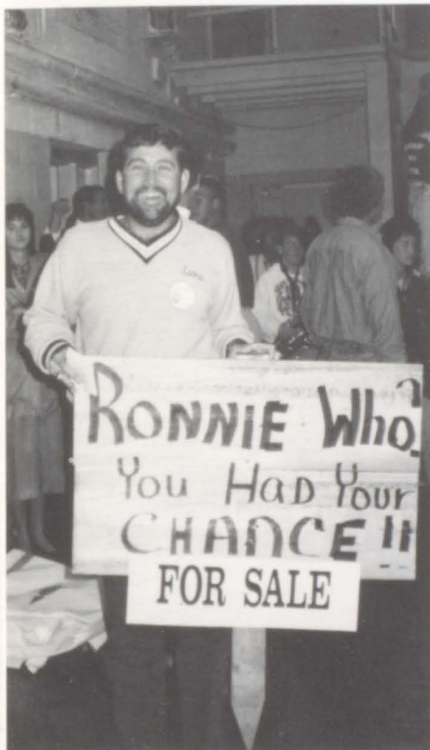 RONNIE WHO?
YOU HAD YOUR
CHANCE!!
FOR SALE